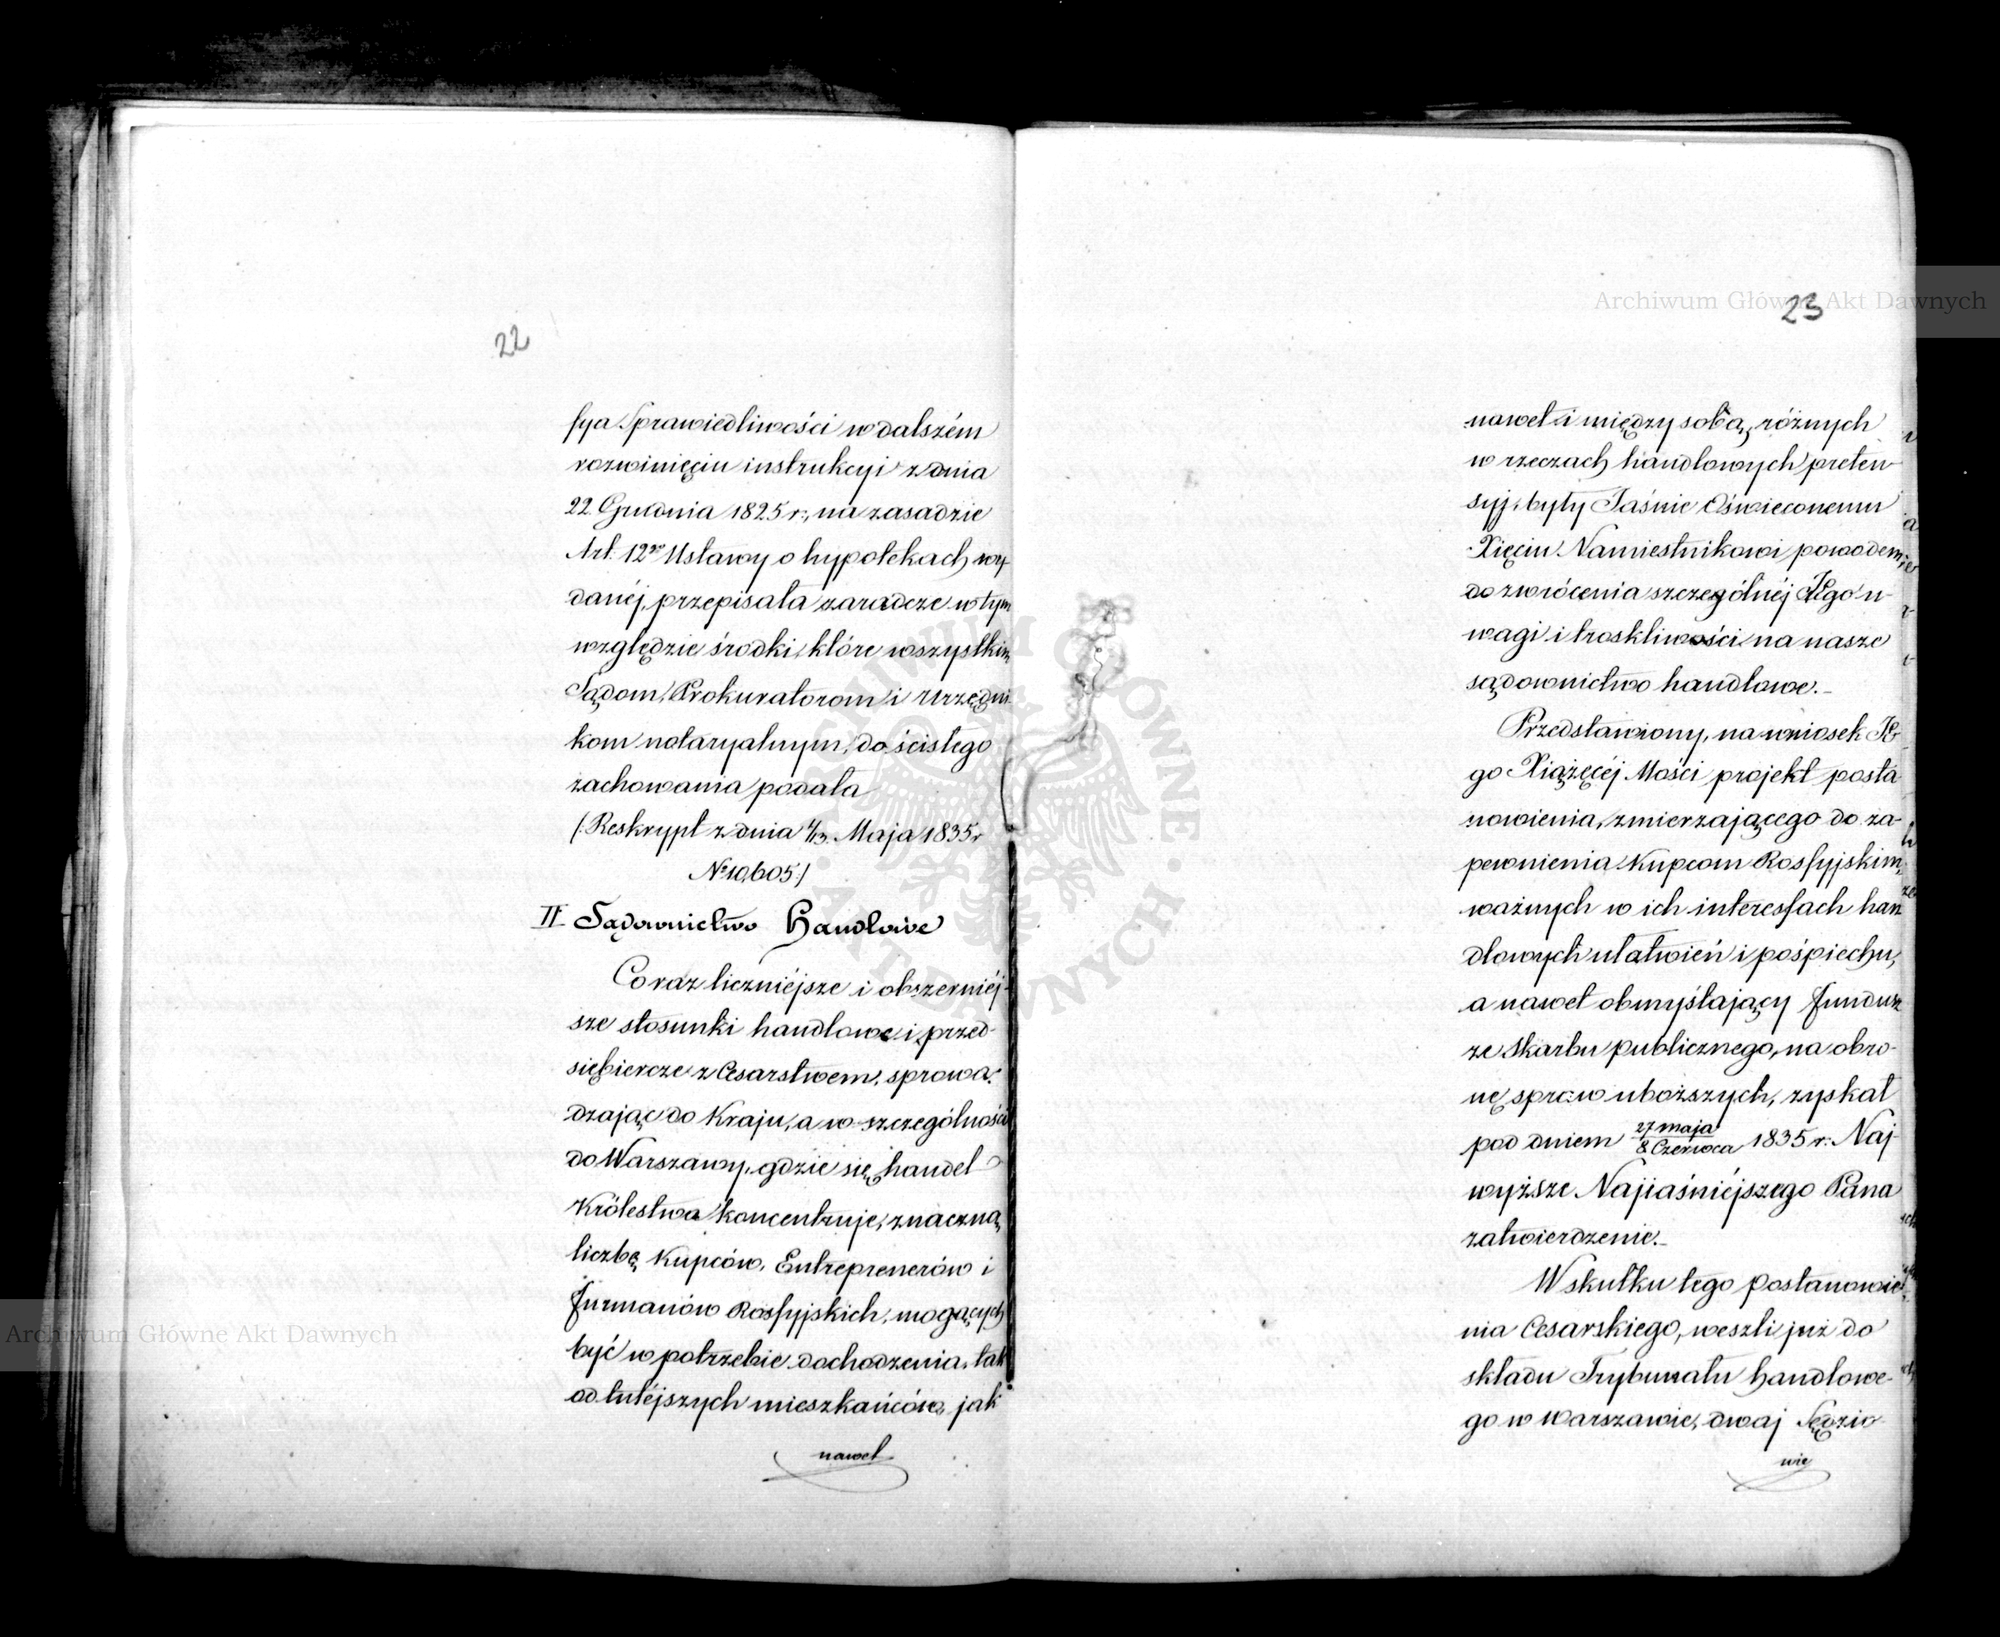 22
sya Sprawiedliwości w dalszém
rozwinięciu instrukcyi z dnia
22. Grudnia 1825 r:, na zasadzie
Art. 12go Ustawy o hypotekach wy-
danéj, przepisała zaradcze w tym
względzie środki, które wszystkim
Sądom, Prokuratorom i Urzędni-
kom notaryalnym, do ścisłego
zachowania podała
/: Reskrypt z dnia 1/13. Maja 1835 r
No 10,605:/
II Sądownictwo Handlowe
Coraz liczniéjsze i obszerniéj-
sze stosunki handlowe i przed-
siębiercze z Cesarstwem, sprowa-
dzając do Kraju, a w szczególności
do Warszawy, gdzie się handel
Królestwa koncentruje, znaczną
liczbę Kupców, Entreprenerów i
furmanów Rossyjskich, mogących
być w potrzebie dochodzenia, tak
od tutéjszych mieszkańców, jak
nawet
23
nawet i między sobą, różnych
w rzeczach handlowych preten-
syj, były Jaśnie Oświeconemu
Xięciu Namiestnikowi powodem
do zwrócenia szczególnéj Jego u-
wagi i troskliwości na nasze
sądownictwo handlowe.-
Przedstawiony, na wniosek Je-
go Xiążęcéj Mości projekt posta-
nowienia, zmierzającego do za-
pewnienia Kupcom Rossyjskim,
ważnych w ich interessach han-
dlowych ułatwień i pośpiechu,
a nawet obmyślający fundusz
ze Skarbu publicznego, na obro-
nę spraw uboższych, zyskał
pod dniem 27 maja/8 Czerwca 1835 r: Naj-
wyższe Najjaśniéjszego Pana
zatwierdzenie.-
W skutku tego postanowie-
nia Cesarskiego, weszli już do
składu Trybunału handlowe-
go w Warszawie, dwaj Sędzio-
wie
Archiwum Główne Akt Dawnych
Archiwum Główne Akt Dawnych
ARCHIWUM GŁÓWNE · AKT DAWNYCH ·